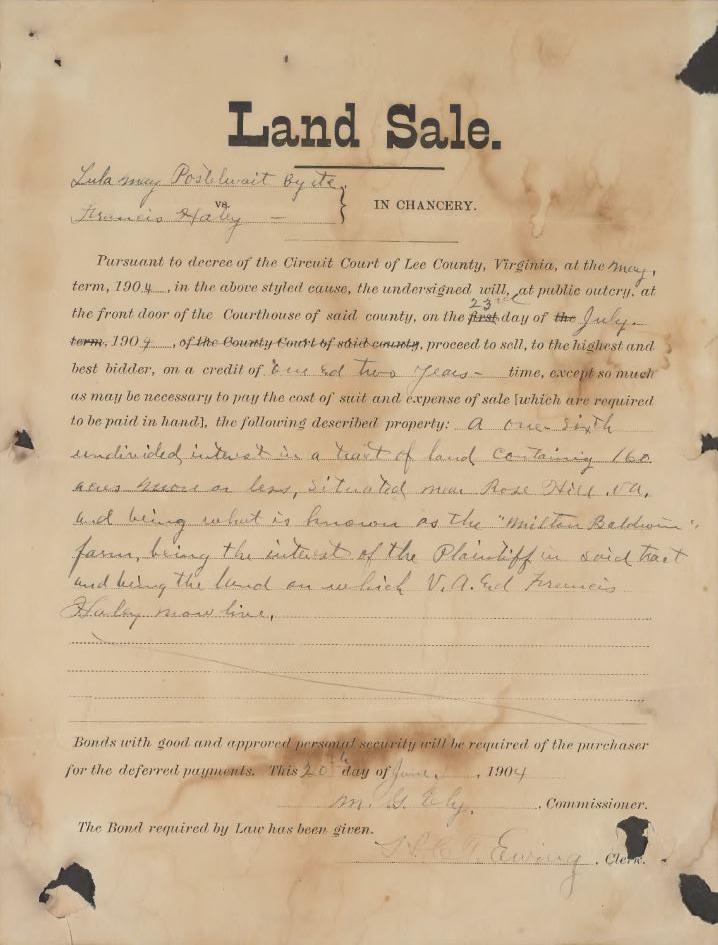 Land Sale.
Lula May Postelwait By etc.
vs.
Francis Haley —
IN CHANCERY.
Pursuant to decree of the Circuit Court of Lee County, Virginia, at the May,
term, 1904, in the above styled cause, the undersigned will, at public outcry, at
23rd
the front door of the Courthouse of said county, on the first day of the July
term, 1904, of the County Court of said county, proceed to sell, to the highest and
best bidder, on a credit of One and two years — time, except so much
as may be necessary to pay the cost of suit and expense of sale [which are required
to be paid in hand], the following described property: A one sixth
undivided interest in a tract of land containing 160
acres more or less, situated near Rose Hill Va.
and being what is known as the "Milton Baldwin"
farm, being the interest of the Plaintiff in said tract
and being the land on which V. A. and Francis
Haley now live.
Bonds with good and approved personal security will be required of the purchaser
for the deferred payments. This 20th day of June, 1904
M. G. Ely, Commissioner.
The Bond required by Law has been given.
Ewing, Clerk.